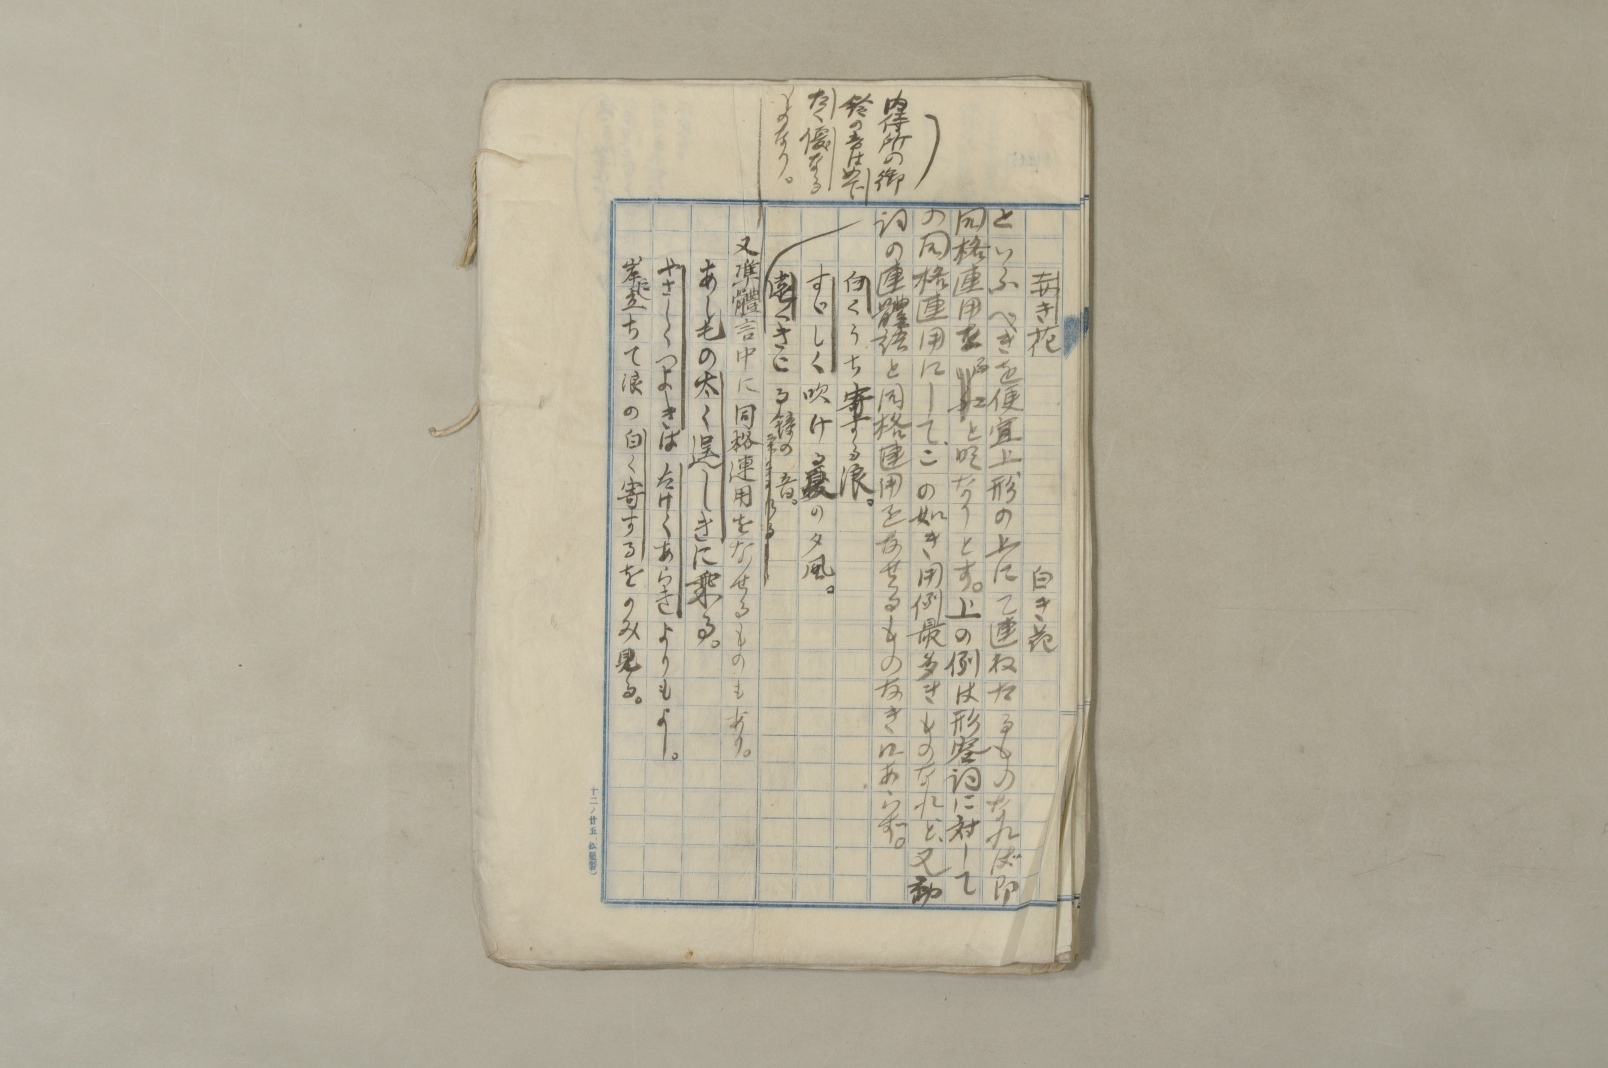 内侍所の御
鈴の音はめで
たく優なる
ものなり。
赤き花　白き花
といふべきを便宜上形の上にて連ねたるものなれば即
同格連用と明なりとす。上の例は形容詞に対して
の同格連用にして、この如き用例最多きものなれど、又動
詞の連體語と同格連用をなせるものなきにあらず。
白くうち寄する浪。
すゞしく吹ける夏の夕風。
遠くきこゆる鐘の音。
又準體言中に同格連用をなせるものもあり。
あし毛の太く逞しきに乗る。
やさしくつよきはたけくあらきよりもよし。
岸に立ちて浪の白く寄するをのみ見る。
十二ノ廿五